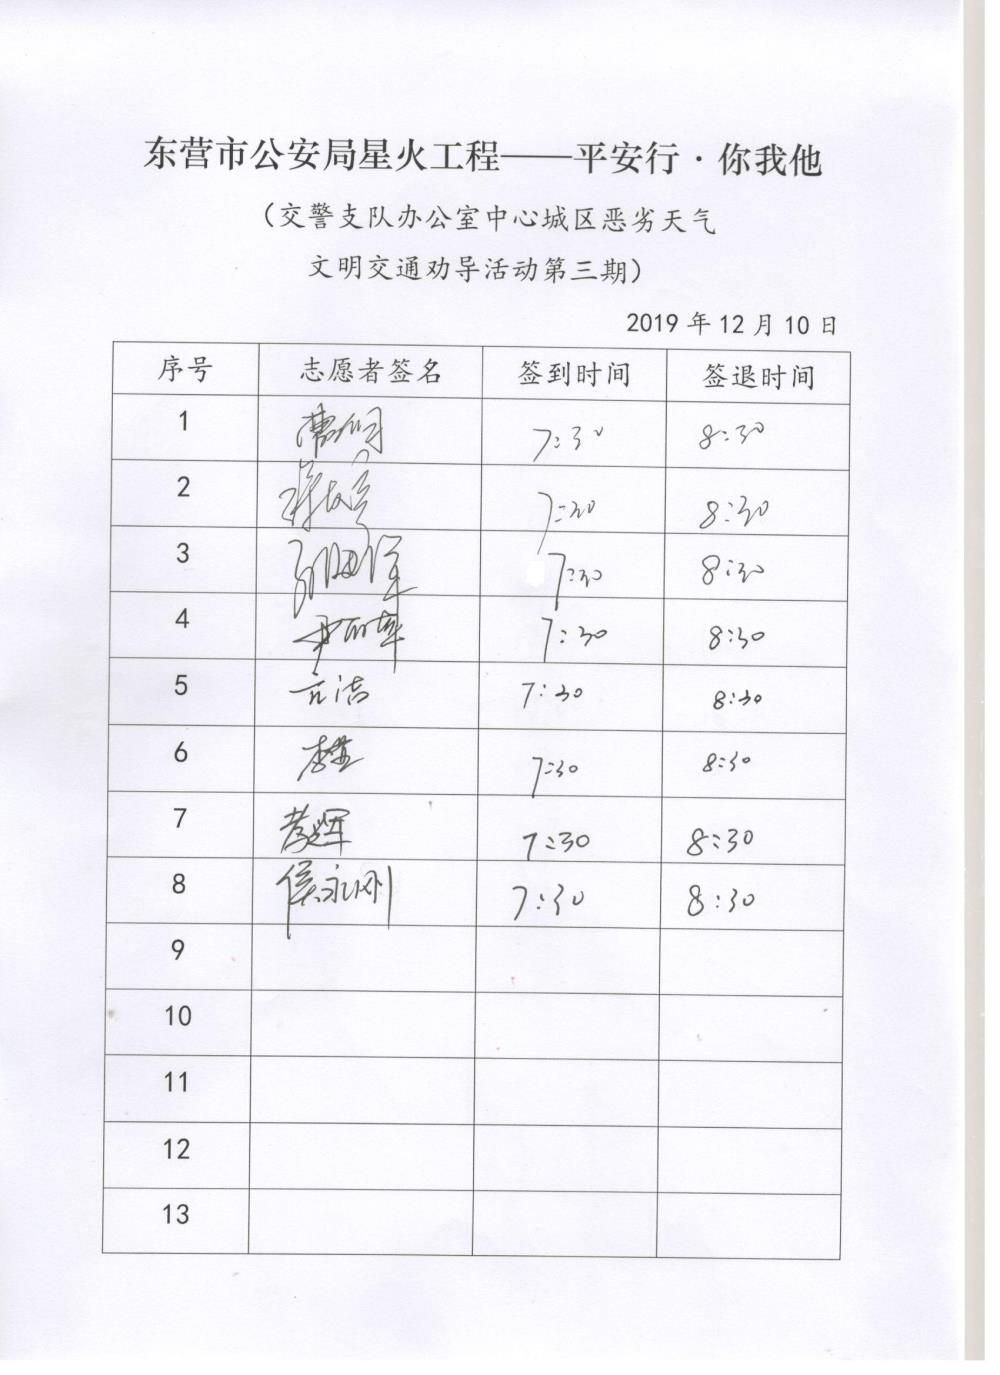 东营市公安局星火工程——平安行·你我他
（交警支队办公室中心城区恶劣天气
文明交通劝导活动第三期）
2019 年 12 月 10 日
序号 志愿者签名 签到时间 签退时间
1 7:30 8:30
2 7:30 8:30
3 7:30 8:30
4 7:30 8:30
5 亓洁 7:30 8:30
6 7:30 8:30
7 7:30 8:30
8 侯永刚 7:30 8:30
9
10
11
12
13